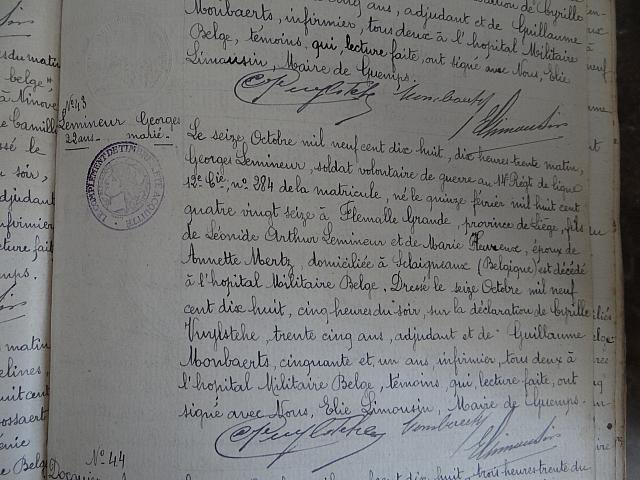 cinq ans, adjudant et de Guillaume
Monbaerts, infirmier, tous deux à l'hopital Militaire
Belge, témoins, qui, lecture faite, ont signé avec Nous, Elie
Limousin, Maire de Guemps.
du matin
belge
à Ninove
Camille
sé le
soir,
adjudant
infirmier
lecture fait
mps.
N° 43
Lemineur Georges
22 ans. marié.
COMPLÉMENT DE TIMBRE
ACQUITTER
Le seize Octobre mil neuf cent dix huit, dix heures trente matin,
Georges Lemineur, soldat volontaire de guerre au 14e Régt de ligne
12e Cie, n° 384 de la matricule, né le quinze février mil huit cent
quatre vingt seize à Flemalle Grande, province de Liège, fils
de Léonide Arthur Lemineur et de Marie Heureux, époux de
Annette Mertz, domiciliée à Sclaigneaux (Belgique) est décédé
à l'hopital Militaire Belge. Dressé le seize Octobre mil neuf
cent dix huit, cinq heures du soir, sur la déclaration de Cyrille
Vuylsteke, trente cinq ans, adjudant et de Guillaume
Monbaerts, cinquante et un ans, infirmier, tous deux à
l'hopital Militaire Belge, témoins, qui, lecture faite, ont
signé avec Nous, Elie Limousin, Maire de Guemps.
C Vuylsteke Monbaerts E Limousin
matin
N° 44
dix huit, trois heures trente du